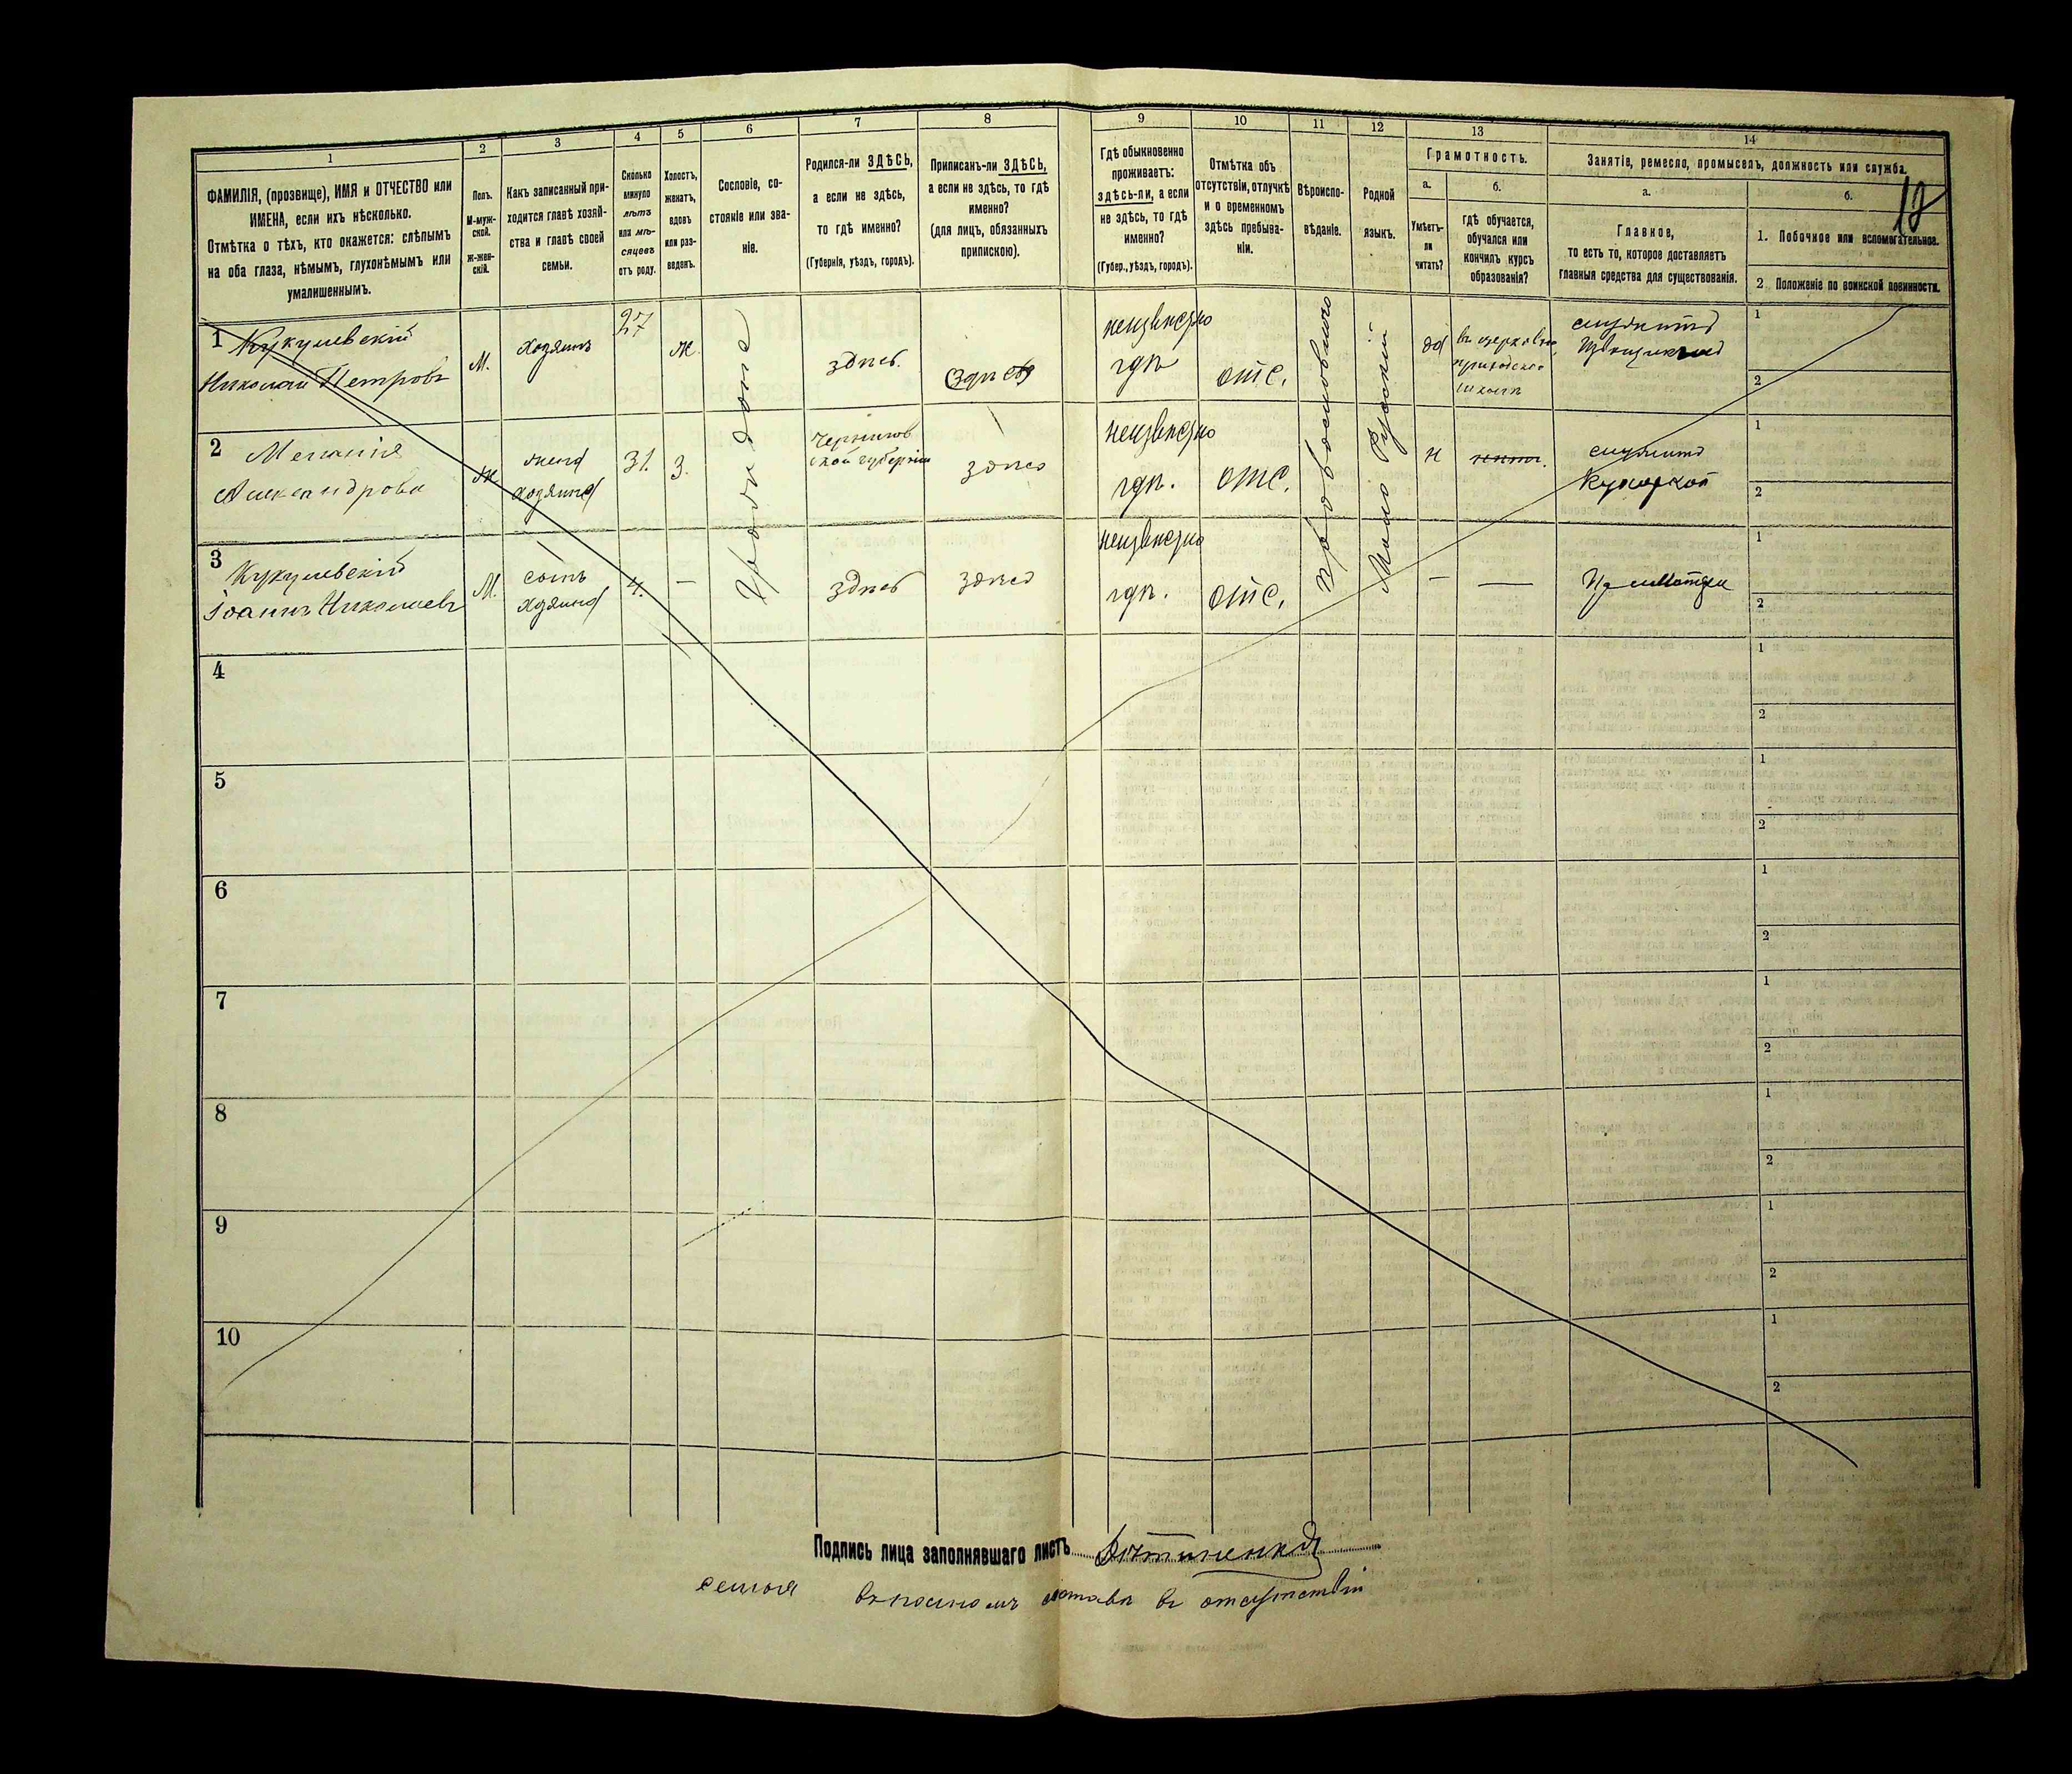 1
ФАМИЛІЯ, (прозвище), ИМЯ и ОТЧЕСТВО или
ИМЕНА, если ихъ нѣсколько.
Отмѣтка о тѣхъ, кто окажется: слѣпымъ
на оба глаза, нѣмымъ, глухонѣмымъ или
умалишеннымъ.
2
Полъ.
М-муж-
ской.
Ж-жен-
скій.
3
Какъ записанный при-
ходится главѣ хозяй-
ства и главѣ своей
семьи.
4
Сколько
минуло
лѣтъ
или мѣ-
сяцевъ
отъ роду.
5
Холостъ,
женатъ,
вдовъ
или раз-
веденъ.
6
Сословіе, со-
стояніе или зва-
ніе.
7
Родился-ли ЗДѢСЬ,
а если не здѣсь,
то гдѣ именно?
(Губернія, уѣздъ, городъ).
8
Приписанъ-ли ЗДѢСЬ,
а если не здѣсь, то гдѣ
именно?
(для лицъ, обязанныхъ
припискою).
9
Гдѣ обыкновенно
проживаетъ:
здѣсь-ли, а если
не здѣсь, то гдѣ
именно?
(Губер., уѣздъ, городъ).
10
Отмѣтка объ
отсутствіи, отлучкѣ
и о временномъ
здѣсь пребыва-
ніи.
11
Вѣроиспо-
вѣданіе.
12
Родной
языкъ.
13
Грамотность.
а.
Умѣетъ-
ли
читать?
б.
гдѣ обучается,
обучался или
кончилъ курсъ
образованія?
14
Занятіе, ремесло, промыселъ, должность или служба.
а.
Главное,
то есть то, которое доставляетъ
главныя средства для существованія.
б.
1. Побочное или вспомогательное.
2 Положеніе по воинской повинности.
1 Кукулевскій
Николай Петровъ
М.
хозяинъ
27
ж.
здѣсь.
здѣсь
неизвѣстно
гдѣ
отс.
да
въ церковно
приходской
школѣ
служитъ
1
2
2 Меланія
Александрова
ж
жена
хозяина
31.
3.
Чернигов
ской губерніи
здѣсь
неизвѣстно
гдѣ.
отс.
н
служитъ
Кухаркой
1
2
3
Кукулевскій
Іоаннъ Николаевъ
М.
сынъ
хозяина
4.
—
здѣсь
здѣсь
неизвѣстно
гдѣ.
отс.
—
—
При матери
1
2
Православного
Мало Русскій
4
1
2
5
1
2
6
1
2
7
1
2
8
1
2
9
1
2
10
1
2
Подпись лица заполнявшаго листъ
семья въ полномъ составѣ въ отсутствіи